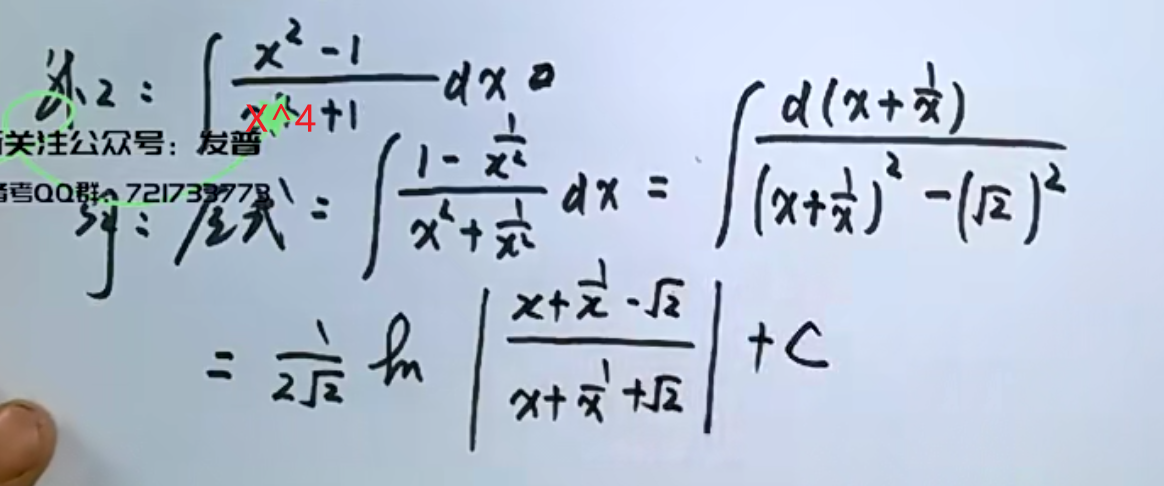 例2: ∫ (x² - 1)/(x^4 + 1) dx
关注公众号：发普
备考QQ群：721739773
解: 原式 = ∫ (1 - 1/x²)/(x² + 1/x²) dx = ∫ d(x + 1/x)/((x + 1/x)² - (√2)²)
= 1/(2√2) ln |(x + 1/x - √2)/(x + 1/x + √2)| + C